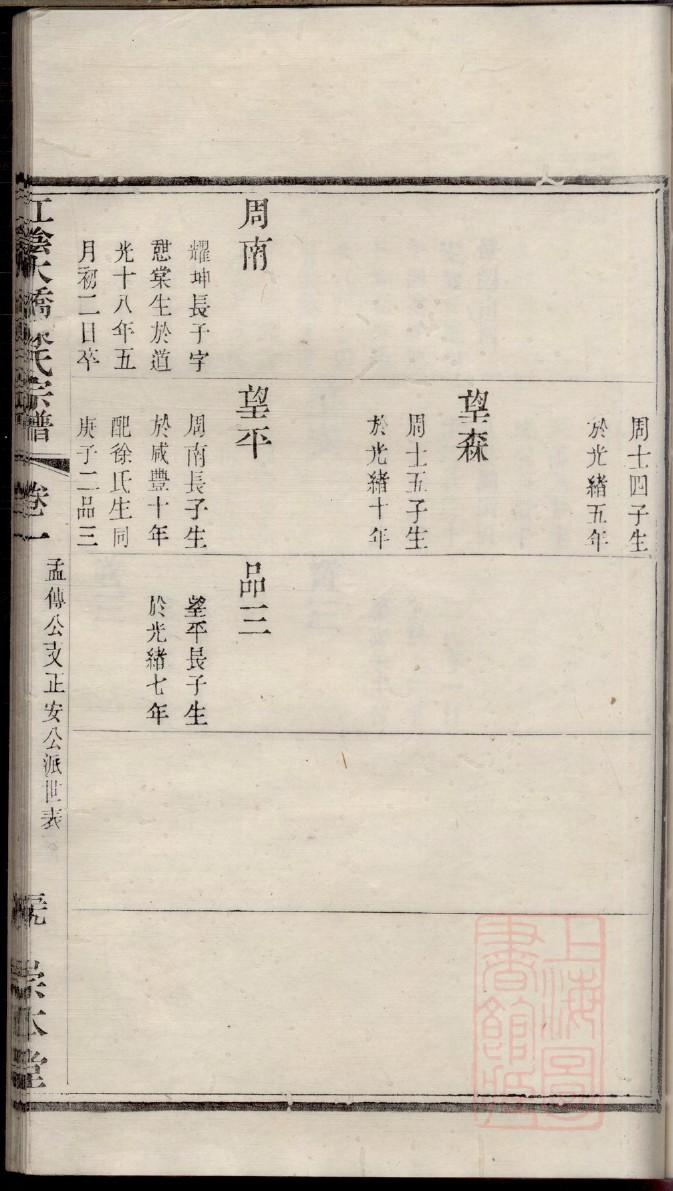 周士四子生
於光緒五年
望森
周士五子生
於光緒十年
周南
耀坤長子字
憇棠生於道
光十八年五
月初二日卒
望平
周南長子生
於咸豐十年
配徐氏生同
庚子二品三
品三
望平長子生
於光緒七年
江陰大橋 氏宗譜
卷一
孟傳公支正安公派世表
宗本堂
上海圖
書館藏